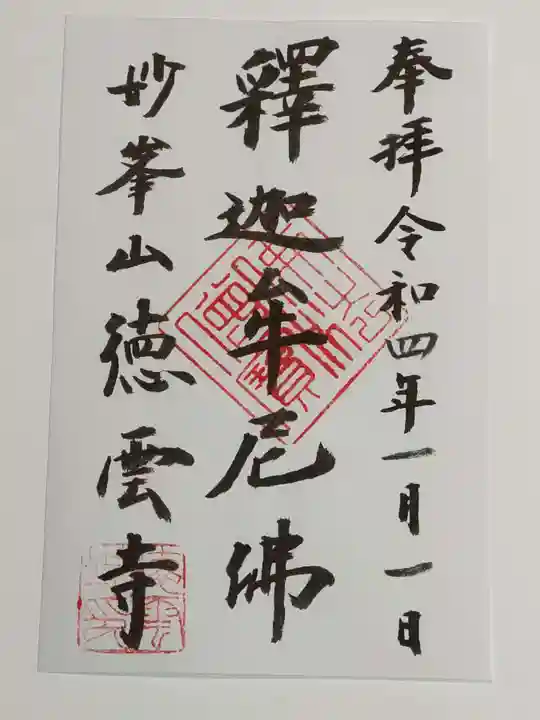 奉拝令和四年一月一日
釋迦牟尼佛
妙峯山德雲寺